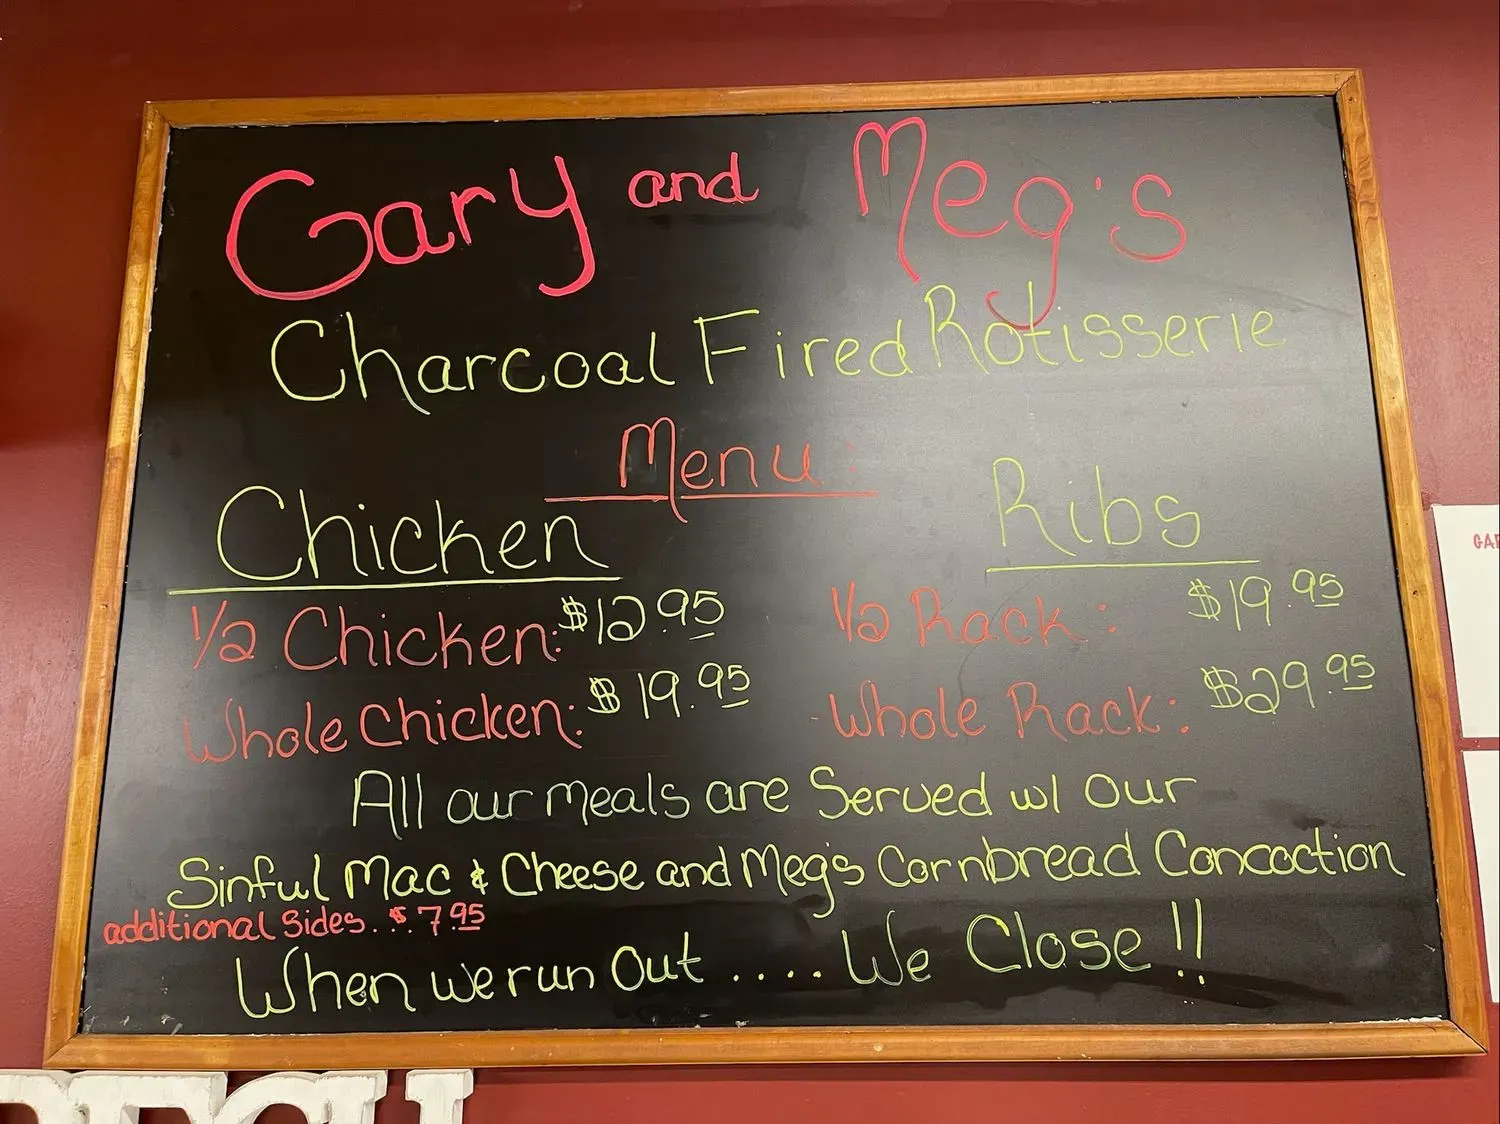 Gary and Meg's
Charcoal Fired Rotisserie
Menu:
Chicken
1/2 Chicken: $12.95
Whole Chicken: $19.95
Ribs
1/2 Rack: $19.95
Whole Rack: $29.95
All our meals are Served w/ Our
Sinful Mac & Cheese and Meg's Cornbread Concoction
additional Sides..$.7.95
When we run Out .... We Close!!
GAR